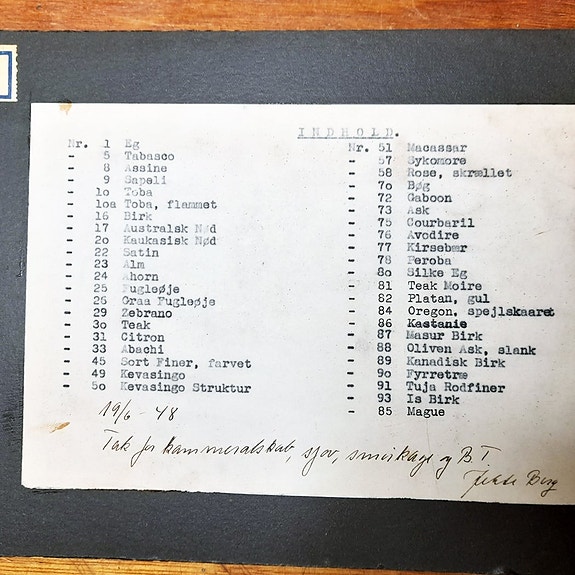 INDHOLD.
Nr. 1 Eg
- 5 Tabasco
- 8 Assine
- 9 Sapeli
- 1o Toba
- 1oa Toba, flammet
- 16 Birk
- 17 Australsk Nød
- 2o Kaukasisk Nød
- 22 Satin
- 23 Alm
- 24 Ahorn
- 25 Fugleøje
- 26 Graa Fugleøje
- 29 Zebrano
- 3o Teak
- 31 Citron
- 33 Abachi
- 45 Sort Finer, farvet
- 49 Kevasingo
- 5o Kevasingo Struktur
Nr. 51 Macassar
- 57 Sykomore
- 58 Rose, skrællet
- 7o Bøg
- 72 Gaboon
- 73 Ask
- 75 Courbaril
- 76 Avodire
- 77 Kirsebær
- 78 Peroba
- 8o Silke Eg
- 81 Teak Moire
- 82 Platan, gul
- 84 Oregon, spejlskaaret
- 86 Kastanie
- 87 Masur Birk
- 88 Oliven Ask, slank
- 89 Kanadisk Birk
- 9o Fyrretræ
- 91 Tuja Rodfiner
- 93 Is Birk
- 85 Mague
19/6 - 48
Tak for kammeratskab, sjov, smørkage og B.T
Berg